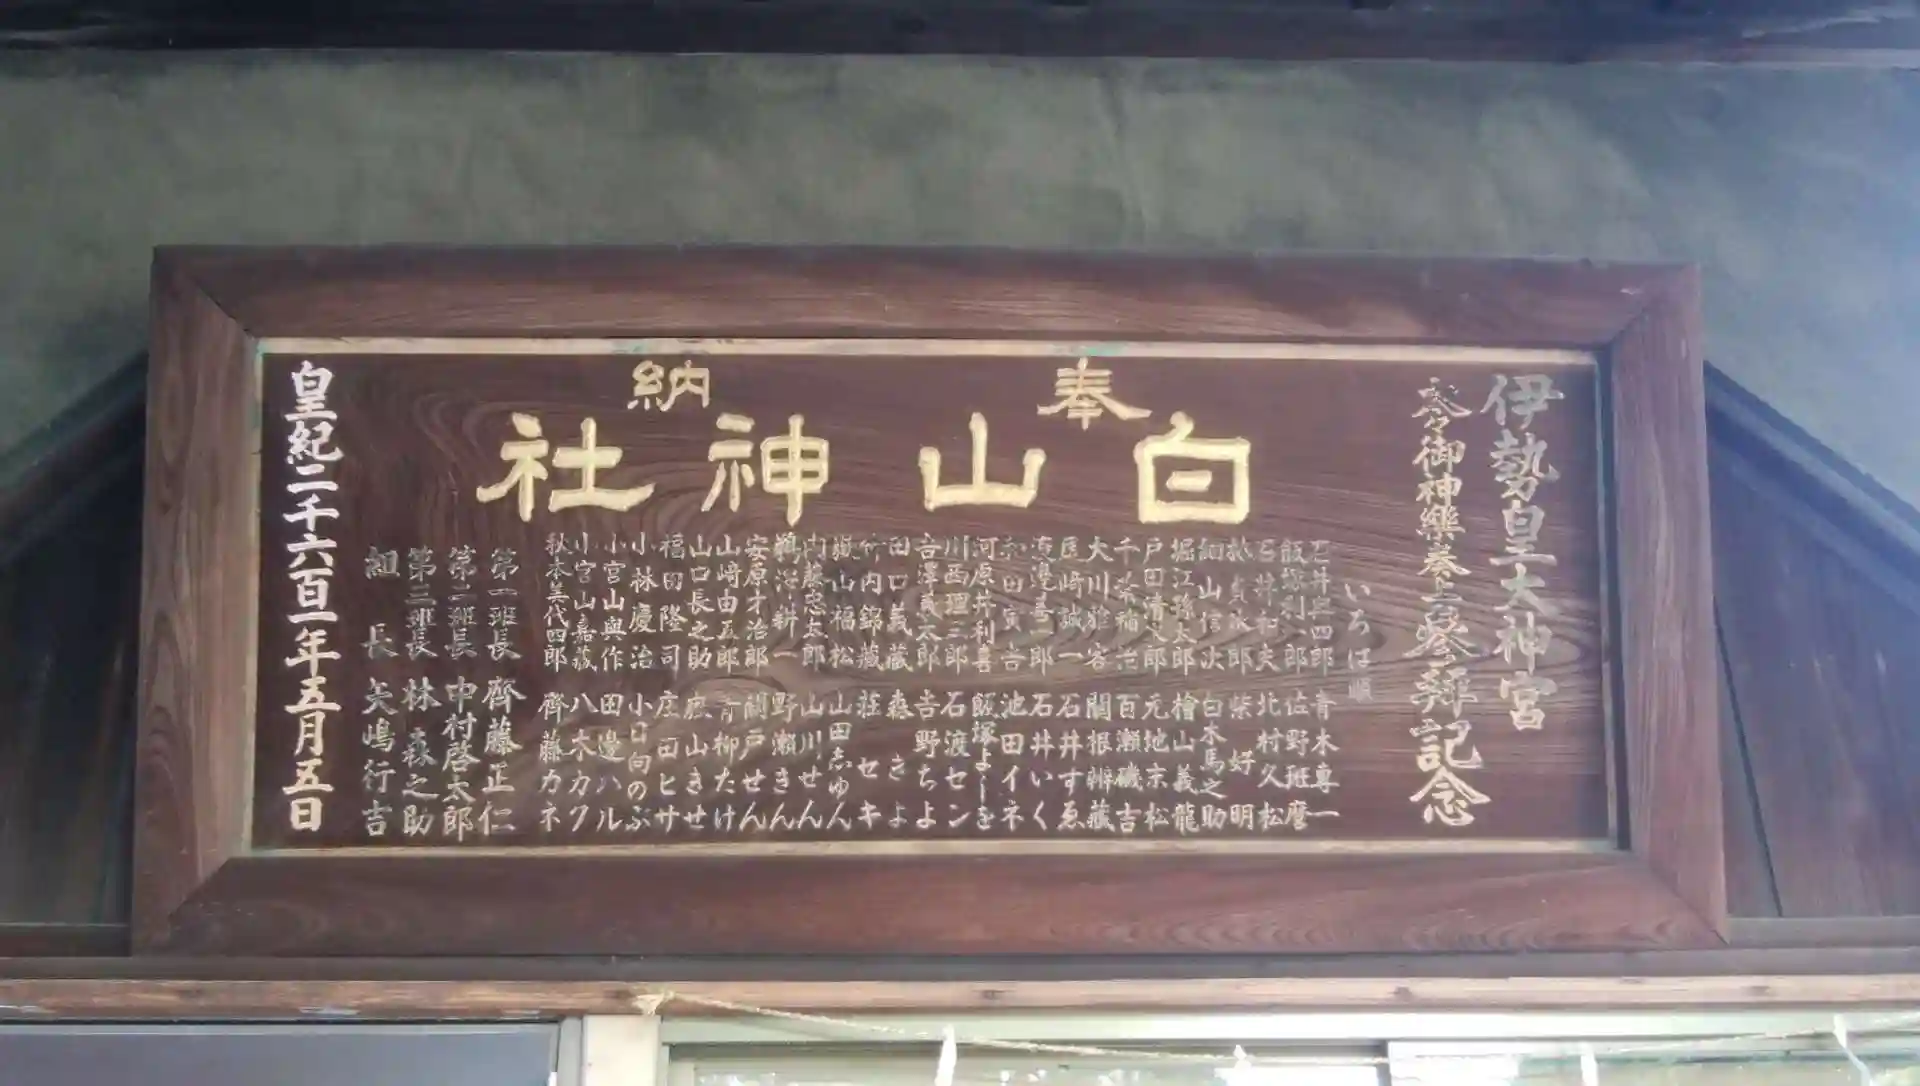 伊勢皇大神宮
太々御神樂奉上參拜記念
奉納
白山神社
いろは順
石井與四郎
飯塚利一郎
石井和夫
秋貞次郎
細山信次
堀江孫太郎
戸田清次郎
千葉稲治
大川雅客
尾崎誠一
渡邊喜一郎
和田寅吉
河原井利喜
川西理三郎
吉澤義太郎
田口義藏
竹内錦藏
嶽山福松
内藤忠太郎
鵜沼耕一
安原才治郎
山崎由五郎
山口長之助
福田隆司
小林慶治
小宮山與作
小宮山嘉藏
秋本美代四郎
青木専一
佐野班麿
北村久松
柴好明
白木馬之助
檜山義龍
元地末松
百瀬磯吉
關根辨藏
石井すゑ
石井いく
池田イネ
飯塚よしを
石渡セン
吉野ちよ
森きよ
荘セキ
山田志ゆん
山川せん
野瀬きん
關戸せん
青柳たけ
鹿山きせ
庄田ヒサ
小日向のぶ
田邊ハル
八木カク
齊藤カネ
第一班長 齊藤正仁
第二班長 中村啓太郎
第三班長 林森之助
組長 矢嶋行吉
皇紀二千六百一年五月五日